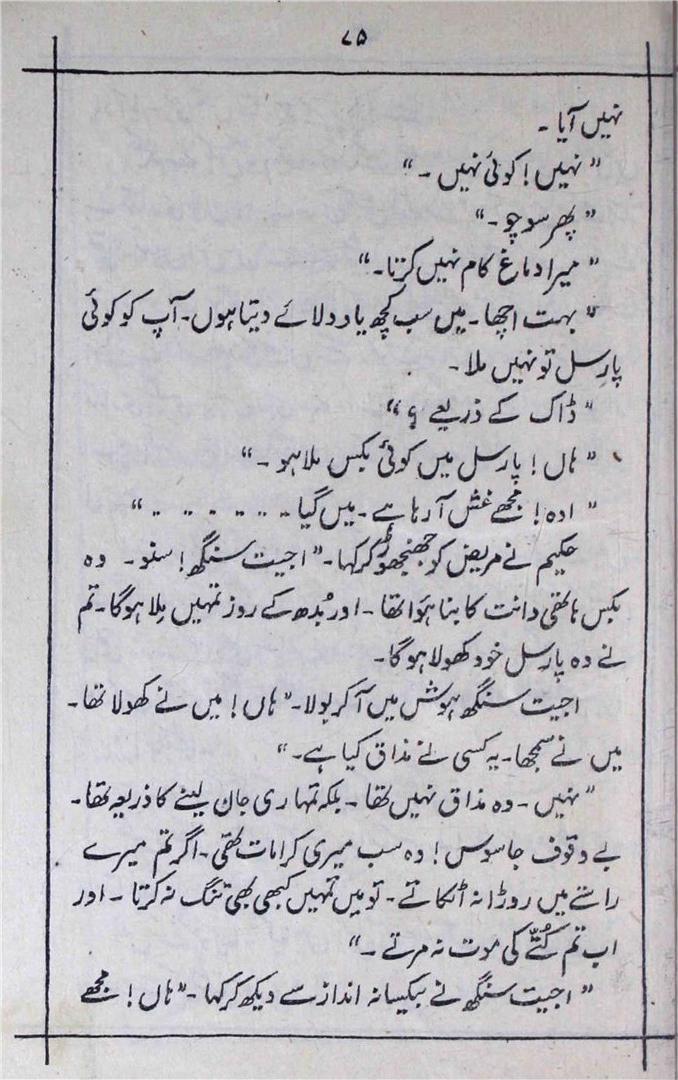 ۷۵
نہیں آیا ۔
" نہیں ! کوئی نہیں ۔"
" پھر سوچو ۔"
" میرا دماغ کام نہیں کرتا ۔"
" بہت اچھا ۔ میں سب کچھ یاد دلائے دیتا ہوں ۔ آپ کو کوئی
پارسل تو نہیں ملا ۔
" ڈاک کے ذریعے ؟"
" ہاں ! پارسل میں کوئی بکس ملا ہو ۔"
" اوہ ! مجھے غش آ رہا ہے ۔ میں گیا ۔۔ ۔۔ ۔۔ ۔۔ ۔۔"
حکیم نے مریض کو جھنجھوڑ کر کہا ۔ " اجیت سنگھ ! سنو ۔ وہ
بکس ہاتھی دانت کا بنا ہوُا تھا ۔ اور بُدھ کے روز تمہیں مِلا ہوگا ۔ تم
نے وہ پارسل خود کھولا ہوگا ۔
اجیت سنگھ ہوش میں آ کر بولا ۔ " ہاں ! میں نے کھولا تھا ۔
میں نے سمجھا ۔ یہ کسی نے مذاق کیا ہے ۔"
" نہیں ۔ وہ مذاق نہیں تھا ۔ بلکہ تمہاری جان لینے کا ذریعہ تھا ۔
بے وقوف جاسوس ! وہ سب میری کرامات تھی ۔ اگر تم میرے
راستے میں روڑا نہ اٹکاتے ۔ تو میں تمہیں کبھی بھی تنگ نہ کرتا ۔ اور
اب تم کُتّے کی موت نہ مرتے ۔"
" اجیت سنگھ نے بیکسانہ انداز سے دیکھ کر کہا ۔ " ہاں ! مجھے